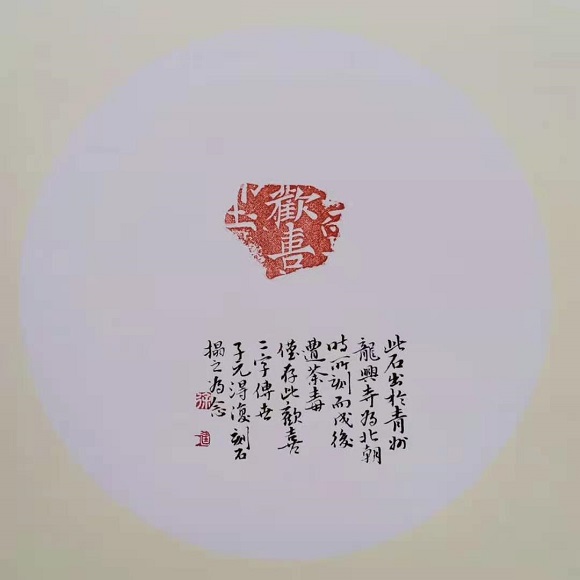 歡喜
此石出於青州
龍興寺為北朝
時所刻而成後
遭荼毒
僅存此歡喜
二字傳世
子元得復刻石
搨之為念